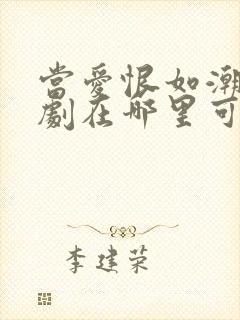 當愛恨如潮
劇在哪里可
李建荣